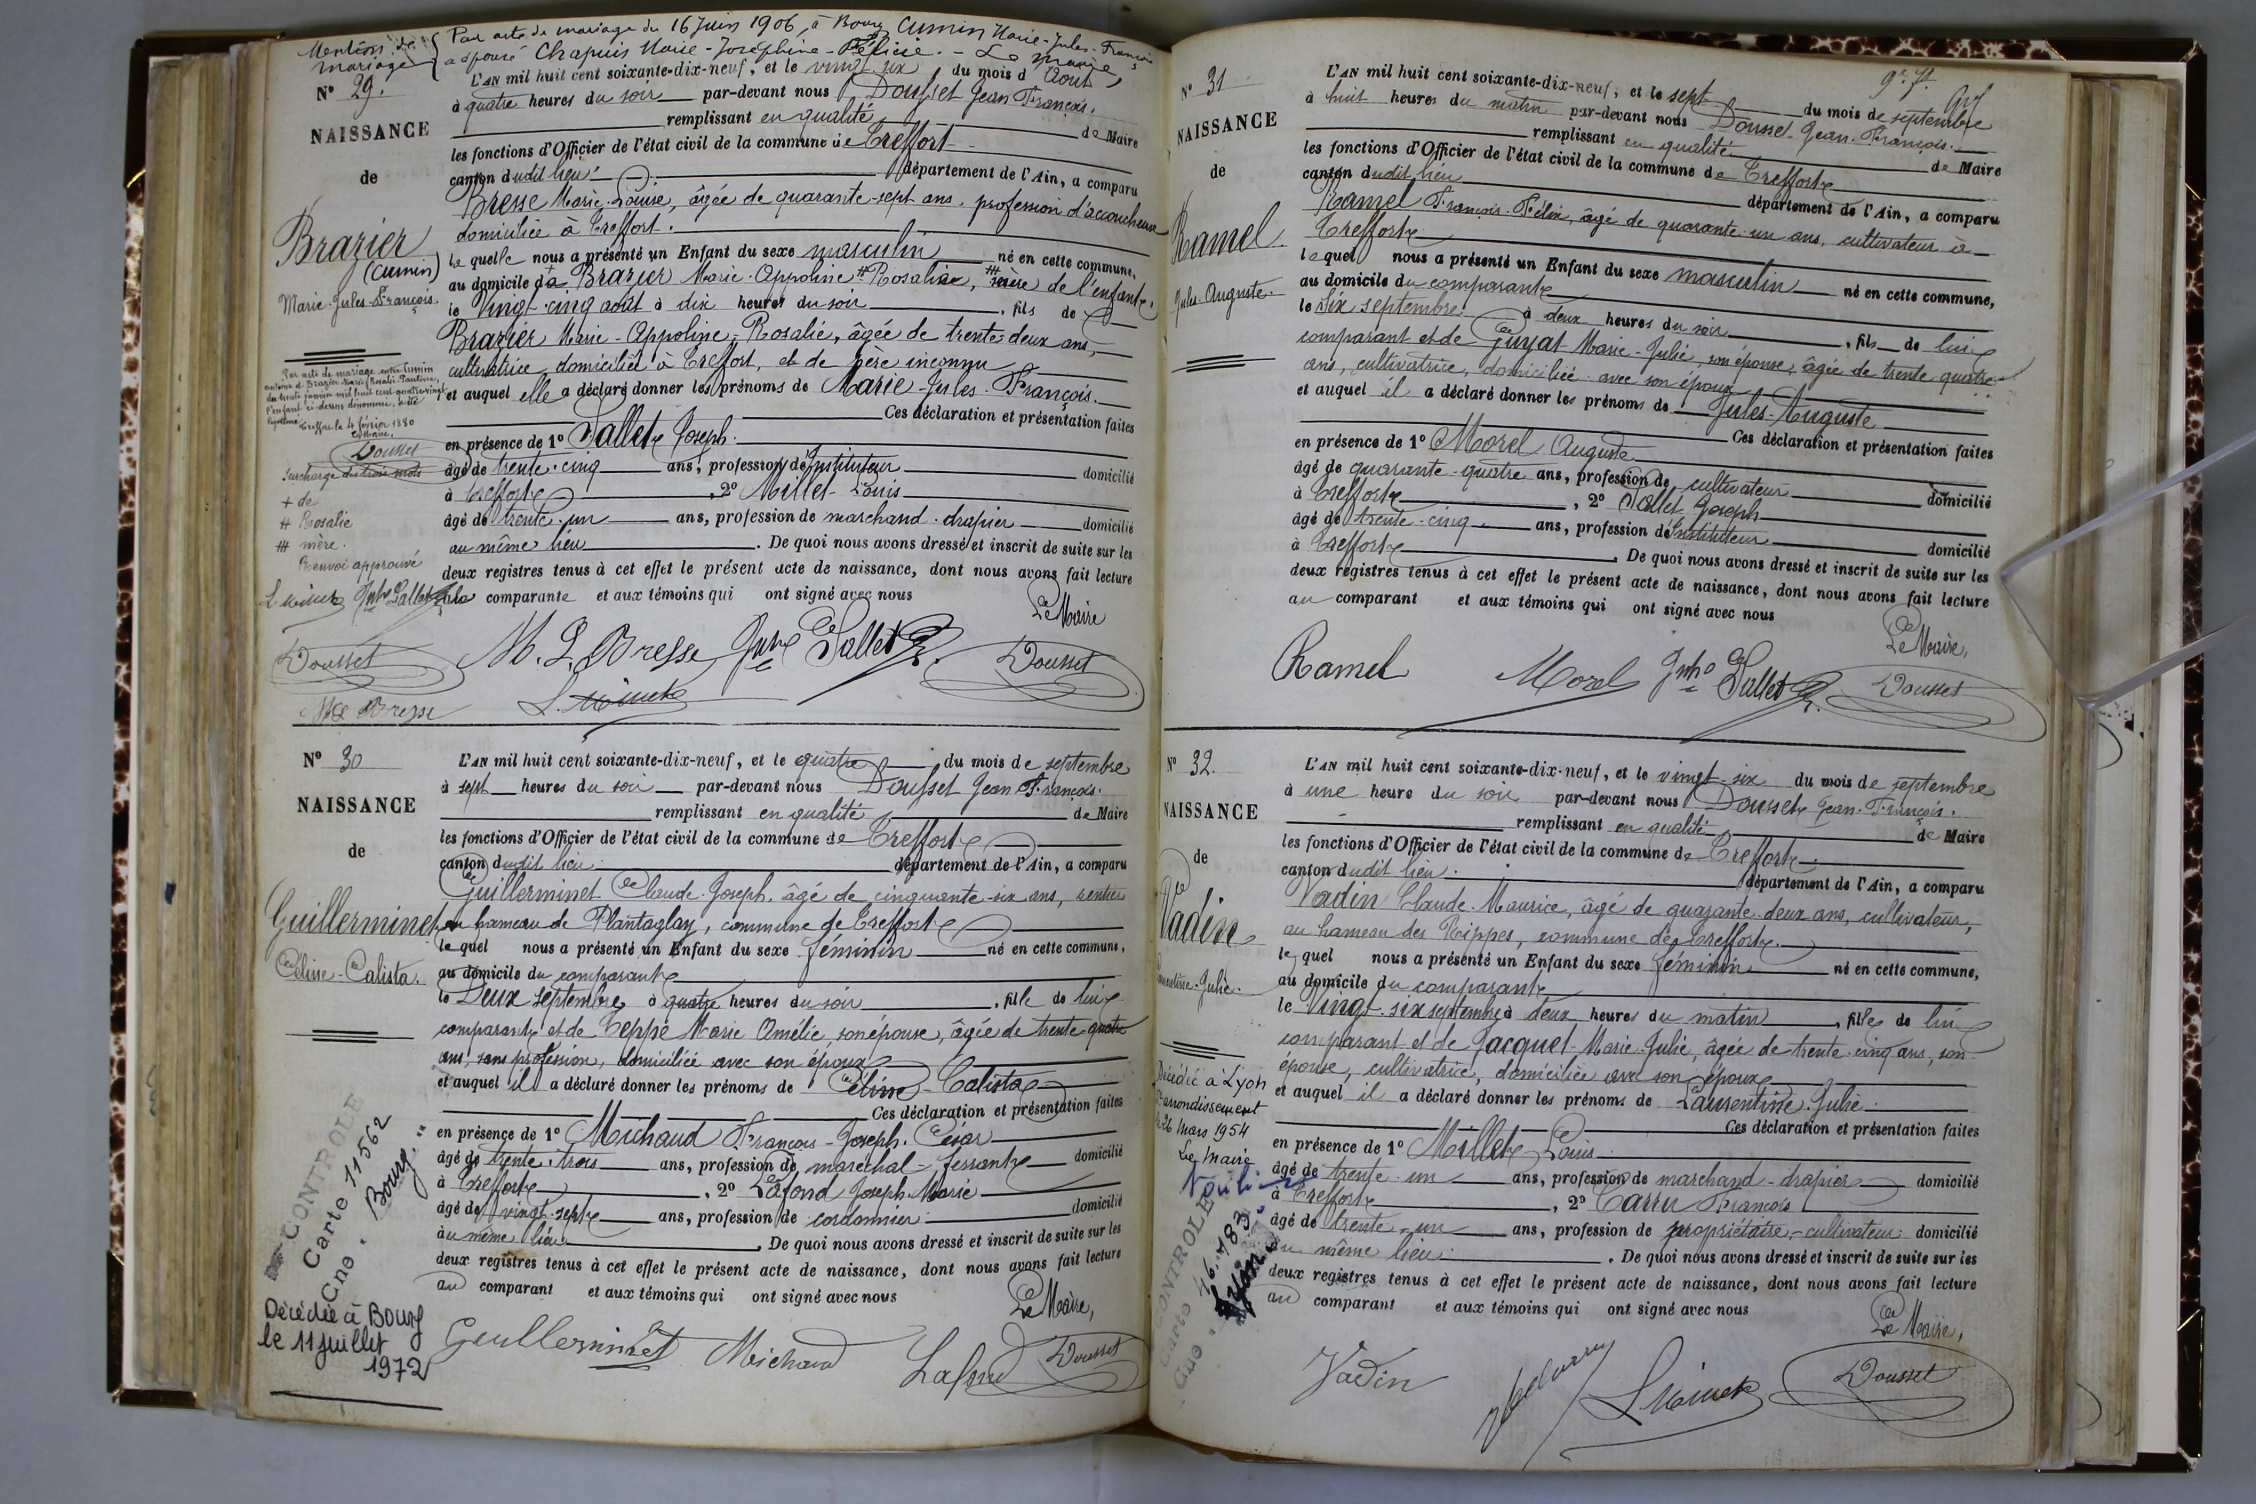 Mention de mariage
Par acte de mariage du 16 Juin 1906, à Bourg Cumin Marie-Jules-François
a épousé Chapuis Marie-Joséphine-Félicie. - Le Maire,
N° 29.
NAISSANCE
de
Brazier
(Cumin)
Marie-Jules-François.
Par acte de mariage entre Cumin
Treffort le 4 février 1880
Dousset
Surcharge des trois mots
+ de
# Rosalie
## mère.
Renvoi approuvé
Dousset
M L Bresse
L'AN mil huit cent soixante-dix-neuf, et le vingt six du mois d'Août
à quatre heures du soir par-devant nous Dousset Jean François.
remplissant en qualité de Maire
les fonctions d'Officier de l'état civil de la commune de Treffort
canton dudit lieu département de l'Ain, a comparu
Bresse Marie Louise, âgée de quarante-sept ans, profession d'accoucheuse
domiciliée à Treffort.
laquelle nous a présenté un Enfant du sexe masculin né en cette commune,
au domicile de + Brazier Marie-Appoline # Rosalie, ## mère de l'enfant,
le Vingt-cinq août à dix heures du soir, fils de
Brazier Marie-Appoline-Rosalie, âgée de trente deux ans,
cultivatrice domiciliée à Treffort, et de père inconnu
et auquel elle a déclaré donner les prénoms de Marie-Jules-François.
Ces déclaration et présentation faites
en présence de 1° Sallet Joseph.
âgé de trente-cinq ans, profession d'Instituteur domicilié
à Treffort, 2° Millet Louis
âgé de trente-un ans, profession de marchand-drapier domicilié
au même lieu. De quoi nous avons dressé et inscrit de suite sur les
deux registres tenus à cet effet le présent acte de naissance, dont nous avons fait lecture
à la comparante et aux témoins qui ont signé avec nous
Le Maire
M. L. Bresse Jph Sallet Dousset
L. Millet
N° 30
NAISSANCE
de
Guillerminet
Céline-Calista.
CONTROLE
Carte 11562
Cne. Bourg.
Décédée à Bourg
le 11 juillet
1972
L'AN mil huit cent soixante-dix-neuf, et le quatre du mois de septembre
à sept heures du soir par-devant nous Dousset Jean François.
remplissant en qualité de Maire
les fonctions d'Officier de l'état civil de la commune de Treffort
canton dudit lieu. département de l'Ain, a comparu
Guillerminet Claude-Joseph, âgé de cinquante-six ans, rentier
au hameau de Plantaglay, commune de Treffort
lequel nous a présenté un Enfant du sexe féminin né en cette commune,
au domicile du comparant
le Deux septembre à quatre heures du soir, fille de lui
comparant et de Teppe Marie Amélie, son épouse, âgée de trente quatre
ans, sans profession, domiciliée avec son époux
et auquel il a déclaré donner les prénoms de Céline-Calista
Ces déclaration et présentation faites
en présence de 1° Michaud François-Joseph-César
âgé de trente-trois ans, profession de maréchal-ferrant domicilié
à Treffort, 2° Lafond Joseph-Marie
âgé de vingt-sept ans, profession de cordonnier domicilié
au même lieu. De quoi nous avons dressé et inscrit de suite sur les
deux registres tenus à cet effet le présent acte de naissance, dont nous avons fait lecture
au comparant et aux témoins qui ont signé avec nous
Le Maire,
Guillerminet Michaud Lafond Dousset
N° 31
NAISSANCE
de
Ramel.
Jules-Auguste.
L'AN mil huit cent soixante-dix-neuf, et le sept du mois de septembre
à huit heures du matin par-devant nous Dousset Jean-François.
remplissant en qualité de Maire
les fonctions d'Officier de l'état civil de la commune de Treffort
canton dudit lieu département de l'Ain, a comparu
Ramel François-Félix, âgé de quarante-un ans, cultivateur à
Treffort
lequel nous a présenté un Enfant du sexe masculin né en cette commune,
au domicile du comparant
le Six septembre à deux heures du soir, fils de lui
comparant et de Guyat Marie-Julie, son épouse, âgée de trente quatre
ans, cultivatrice, domiciliée avec son époux
et auquel il a déclaré donner les prénoms de Jules-Auguste
Ces déclaration et présentation faites
en présence de 1° Morel Auguste
âgé de quarante-quatre ans, profession de cultivateur domicilié
à Treffort, 2° Sallet Joseph
âgé de trente-cinq ans, profession d'Instituteur domicilié
à Treffort. De quoi nous avons dressé et inscrit de suite sur les
deux registres tenus à cet effet le présent acte de naissance, dont nous avons fait lecture
au comparant et aux témoins qui ont signé avec nous
Le Maire,
Ramel Morel Jph Sallet Dousset
N° 32.
NAISSANCE
de
Vadin
Laurentine-Julie.
Décédée à Lyon
arrondissement
le 26 Mars 1954
Le Maire
CONTROLE
Carte 46.783
Cne. Lyon
L'AN mil huit cent soixante-dix-neuf, et le vingt-six du mois de septembre
à une heure du soir par-devant nous Dousset Jean-François.
remplissant en qualité de Maire
les fonctions d'Officier de l'état civil de la commune de Treffort
canton dudit lieu. département de l'Ain, a comparu
Vadin Claude-Maurice, âgé de quarante-deux ans, cultivateur,
au hameau des Rippes, commune de Treffort.
lequel nous a présenté un Enfant du sexe féminin né en cette commune,
au domicile du comparant
le Vingt-six septembre à deux heures du matin, fille de lui
comparant et de Jacquet Marie-Julie, âgée de trente-cinq ans, son
épouse, cultivatrice, domiciliée avec son époux
et auquel il a déclaré donner les prénoms de Laurentine-Julie.
Ces déclaration et présentation faites
en présence de 1° Millet Louis
âgé de trente-un ans, profession de marchand-drapier domicilié
à Treffort, 2° Carru François
âgé de trente-un ans, profession de propriétaire-cultivateur domicilié
au même lieu. De quoi nous avons dressé et inscrit de suite sur les
deux registres tenus à cet effet le présent acte de naissance, dont nous avons fait lecture
au comparant et aux témoins qui ont signé avec nous
Le Maire,
Vadin L. Millet Dousset